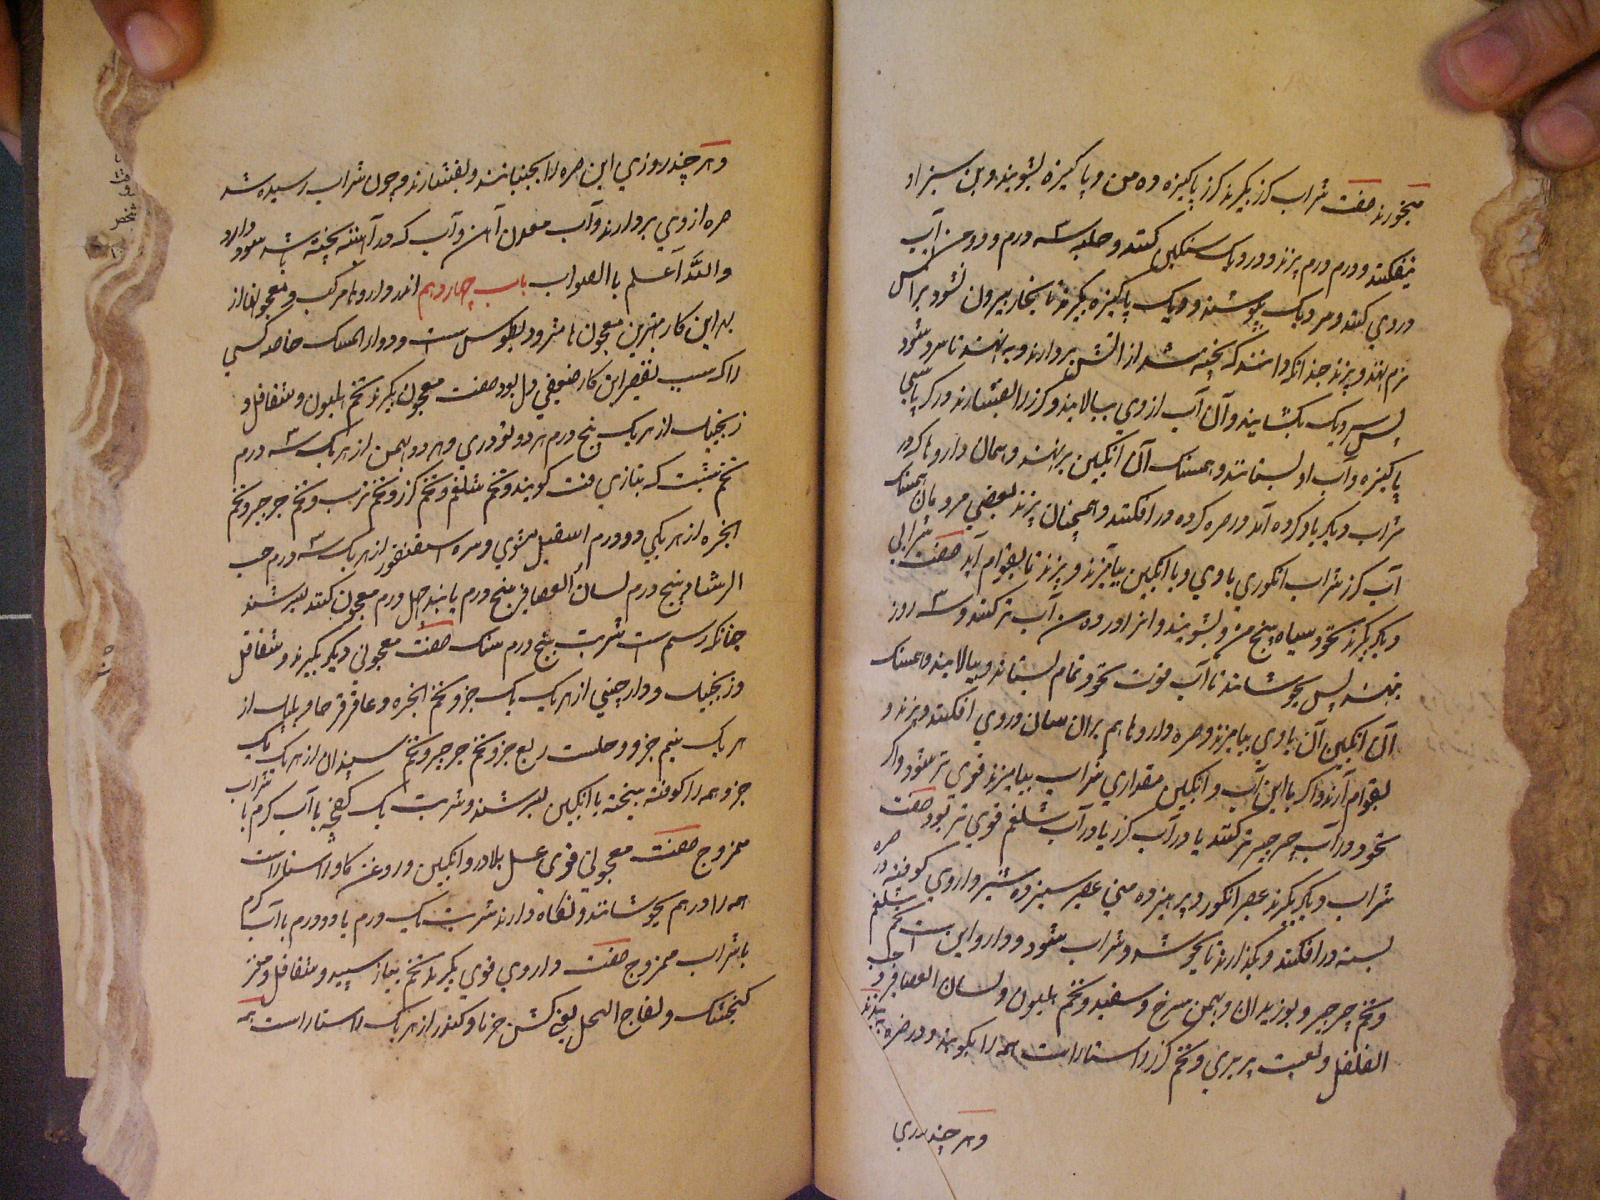 میخورند صفت شراب کزر بگیرند کزر پاکیزه ده من و پاکیزه بشویند و بن سبز او
بیفکنند و درم درم ببرند و در دیک سنکین کنند و حلبه سه درم و دو من آب
در وی کنند و سر دیک بپوشند و دیک پاکیزه بگیرند تا بخار بیرون نشود بر آتش
نرم نهند و بپزند چندانکه دانند که پخته شد از آتش بردارند و بنهند تا سرد شود
پس سر دیک بکشایند و آن آب از وی بپالایند و کزر را بفشارند در کرباسی
پاکیزه و آب او بستانند و همسنک آن انکبین برنهند و همان داروها که در
شراب دیکر یاد کرده آمد در صره کرده در افکنند و همچنان بپزند بعضی مردمان همسنک
آب کزر شراب انکوری با وی و با انکبین بیامیزند و بپزند تا بقوام آید صفت شرابی
دیکر بگیرند نخود سیاه پنج من و بشویند و اندر ده من آب تر کنند و سه روز
بنهند پس بجوشانند تا آب قوت نخود تمام بستاند و بپالایند و همسنک
آن انکبین آن با وی بیامیزند و صره داروها هم بران سان در وی افکنند و بپزند و
بقوام آرند و اکر با این آب و انکبین مقداری شراب بیامیزند قوی تر شود و اکر
نخود در آب جرجیر تر کنند یا در آب کزر یا در آب شلغم قوی تر بود صفت
شراب دیکر بگیرند عصیر انکور و بر هر ده منی عصیر سیزده شیر داروی کوفته در صره
بسته در افکنند و بگذارند تا بجوشد و شراب شود و دارو این است تخم شلغم
و تخم جرجیر و بوزیدان و بهمن سرخ و سفید و تخم هلیون و لسان العصافیر و حب
الفلفل و لعبت بربری و تخم کزر راستاراست همه را بکوبند و در صره ببندند
و هر چند روزی
و هر چند روزی این صره را بجنبانند و بفشارند و چون شراب رسیده شد
صره از وی بردارند و آب معدن آهن و آب که در آهن پخته باشد سود دارد
والله اعلم بالصواب باب چهاردهم اندر داروها مرکب و معجونها از
بهر این کار بهترین معجون ها مثرودیطوس است و دواء المسک خاصه کسی
را که سبب تقصیر این کار ضعیفی دل بود صفت معجون بگیرند تخم هلیون و شقاقل و
زنجبیل از هر یک پنج درم هر دو تودری و هر دو بهمن از هر یک سه درم
تخم شبت که بتازی فت کویند و تخم شلغم و تخم کزر و تخم ترب و تخم جرجیر و تخم
انجره از هر یکی دو درم اسقیل مشوی و سره اسقنقور از هر یک سه درم حب
الرشاد پنج درم لسان العصافیر پنج درم پانید چهل درم معجون کنند بسرشند
چنانکه رسم است شربت پنج درم سنک صفت معجونی دیکر بگیرند شقاقل
و زنجبیل و دارچینی از هر یک یک جزو تخم انجره و عاقرقرحا و پلپل از
هر یک نیم جزو و حلتیت ربع جزو تخم جرجیر و تخم سپندان از هر یک یک
جزو همه را کوفته بیخته با انکبین بسرشند و شربت یک کفچه با آب کرم یا شراب
ممزوج صفت معجونی قوی عسل بلادر و انکبین و روغن کاو راستاراست
همه را در هم بجوشانند و نکاه دارند شربت یک درم یا دو درم با آب کرم
یا شراب ممزوج صفت داروی قوی بگیرند تخم پیاز سپید و شقاقل و مغز
کنجشک و لقاح النحل یعنی کشن خرما و کندر از هر یک راستاراست همه